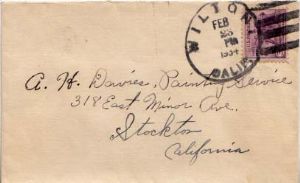 WILTON
FEB
26
PM
1934
CALIF.
A. H. Davies, Painting Service
318 East Minor Ave.
Stockton
California